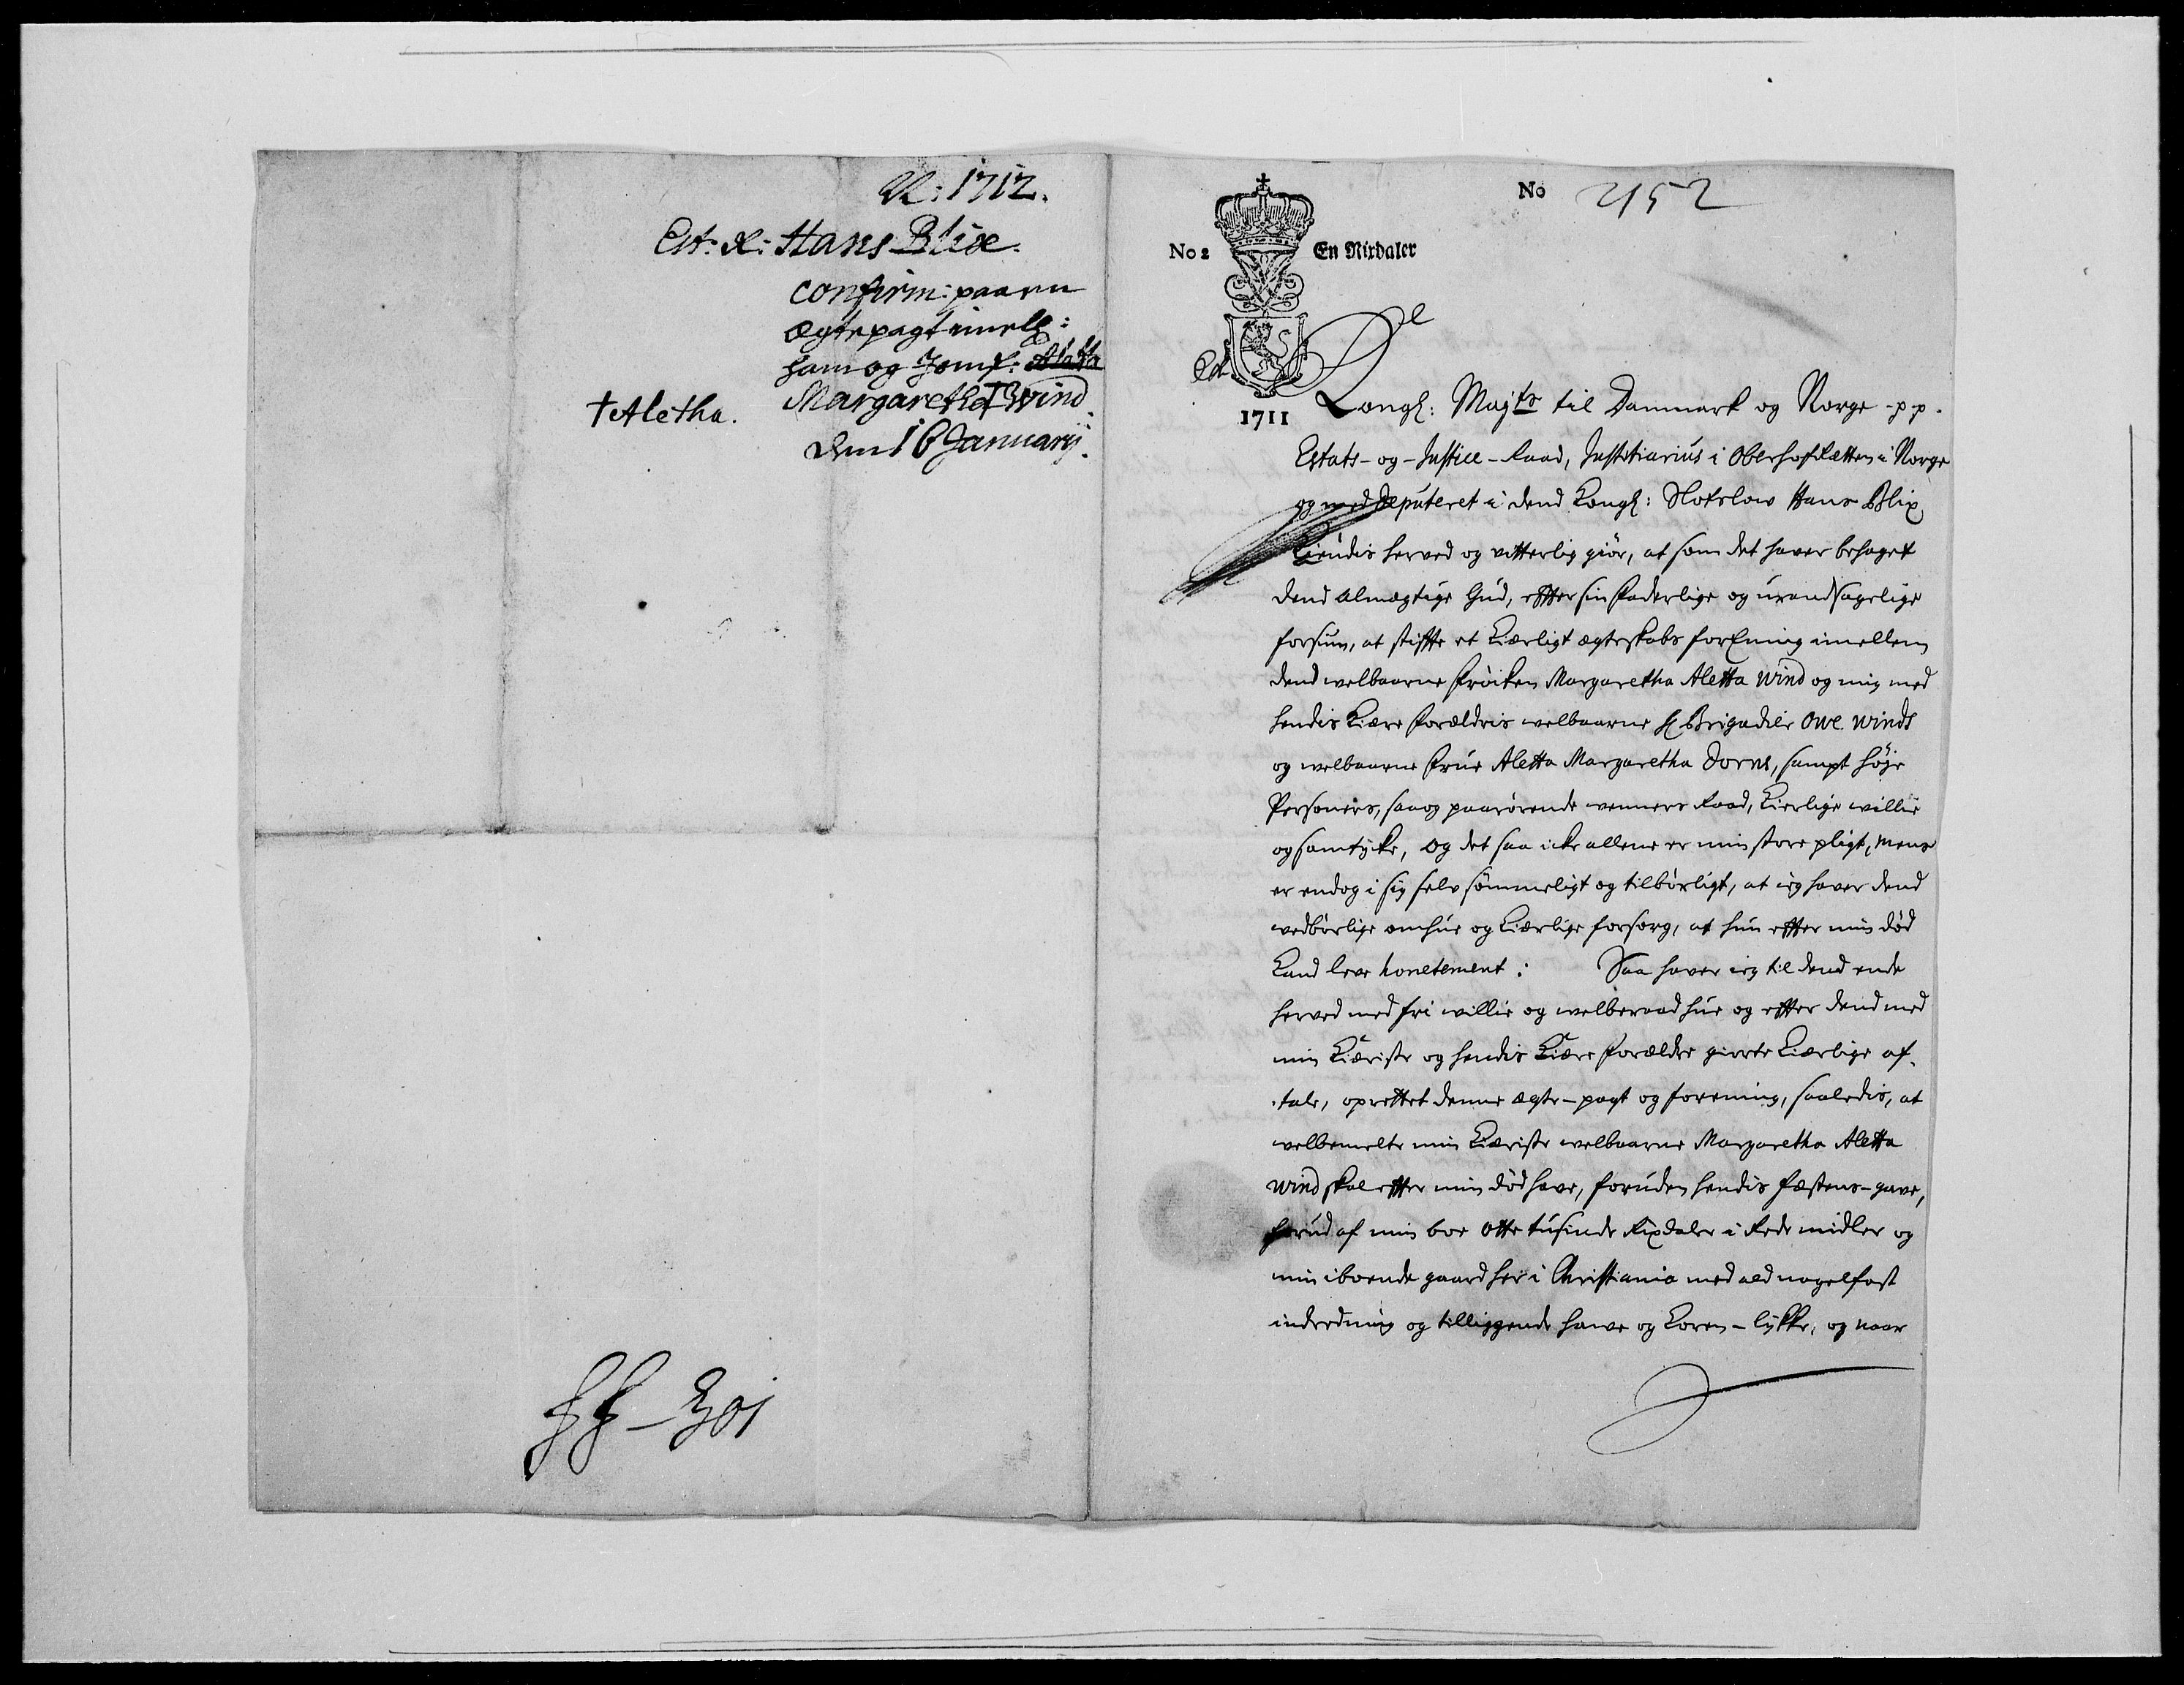 N: 1712.
Est: R: Hans Blixe.
confirm: paa en
ægtepagt imell:
ham og Jomf: Aletta
Margaretha † Wind
† Aletha.
Den 16 Januarij.
301
No 2452
No 2 En Rixdaler
1711
Kongl: Maj:ts til Danmark og Norge pp.
Estats- og Justice-Raad, Justitiarius i OberhofRætten i Norge
og med deputeret i dend Kongl: Slotslow Hans Blix
Kiendis herved og vitterlig giör, at som det haver behaget
dend almægtige Gud, effter sin faderlige og urandsagelige
forsiun, at stiffte et Kiærligt ægteskabs forEning imellem
dend welbaarne fröiken Margaretha Aletta Wind og mig med
hendis Kiære forældris welbaarne H Brigadier Owe Winds
og welbaarne frue Aletta Margaretha Dorns, sampt höje
Personers, saa og paarörende venners Raad, Kierlige willie
og samtÿcke, og det saa icke allene er min store pligt, mens
er endog i sig selv sömmeligt og tilbörligt, at ieg haver dend
vedbörlige omhue og Kiærlige forsorg, at hun effter min död
Kand leve honetement: Saa haver ieg til dend ende
herved med fri willie og welberaad hue og effter dend med
min Kiæriste og hendis Kiære forældre giorte Kiærlige af-
tale, oprettet denne ægte-pagt og forening, saaledis, at
welbemelte min Kiæriste welbaarne Margaretha Aletta
Wind skal effter min död have, foruden hendis fæstens-gave,
forud af min boe otte tusinde Rixdaler i Rede midler og
min iboende gaard her i Christiania med ald nagelfast
indredning og tilliggende hawe og Koren-lykke, og naar